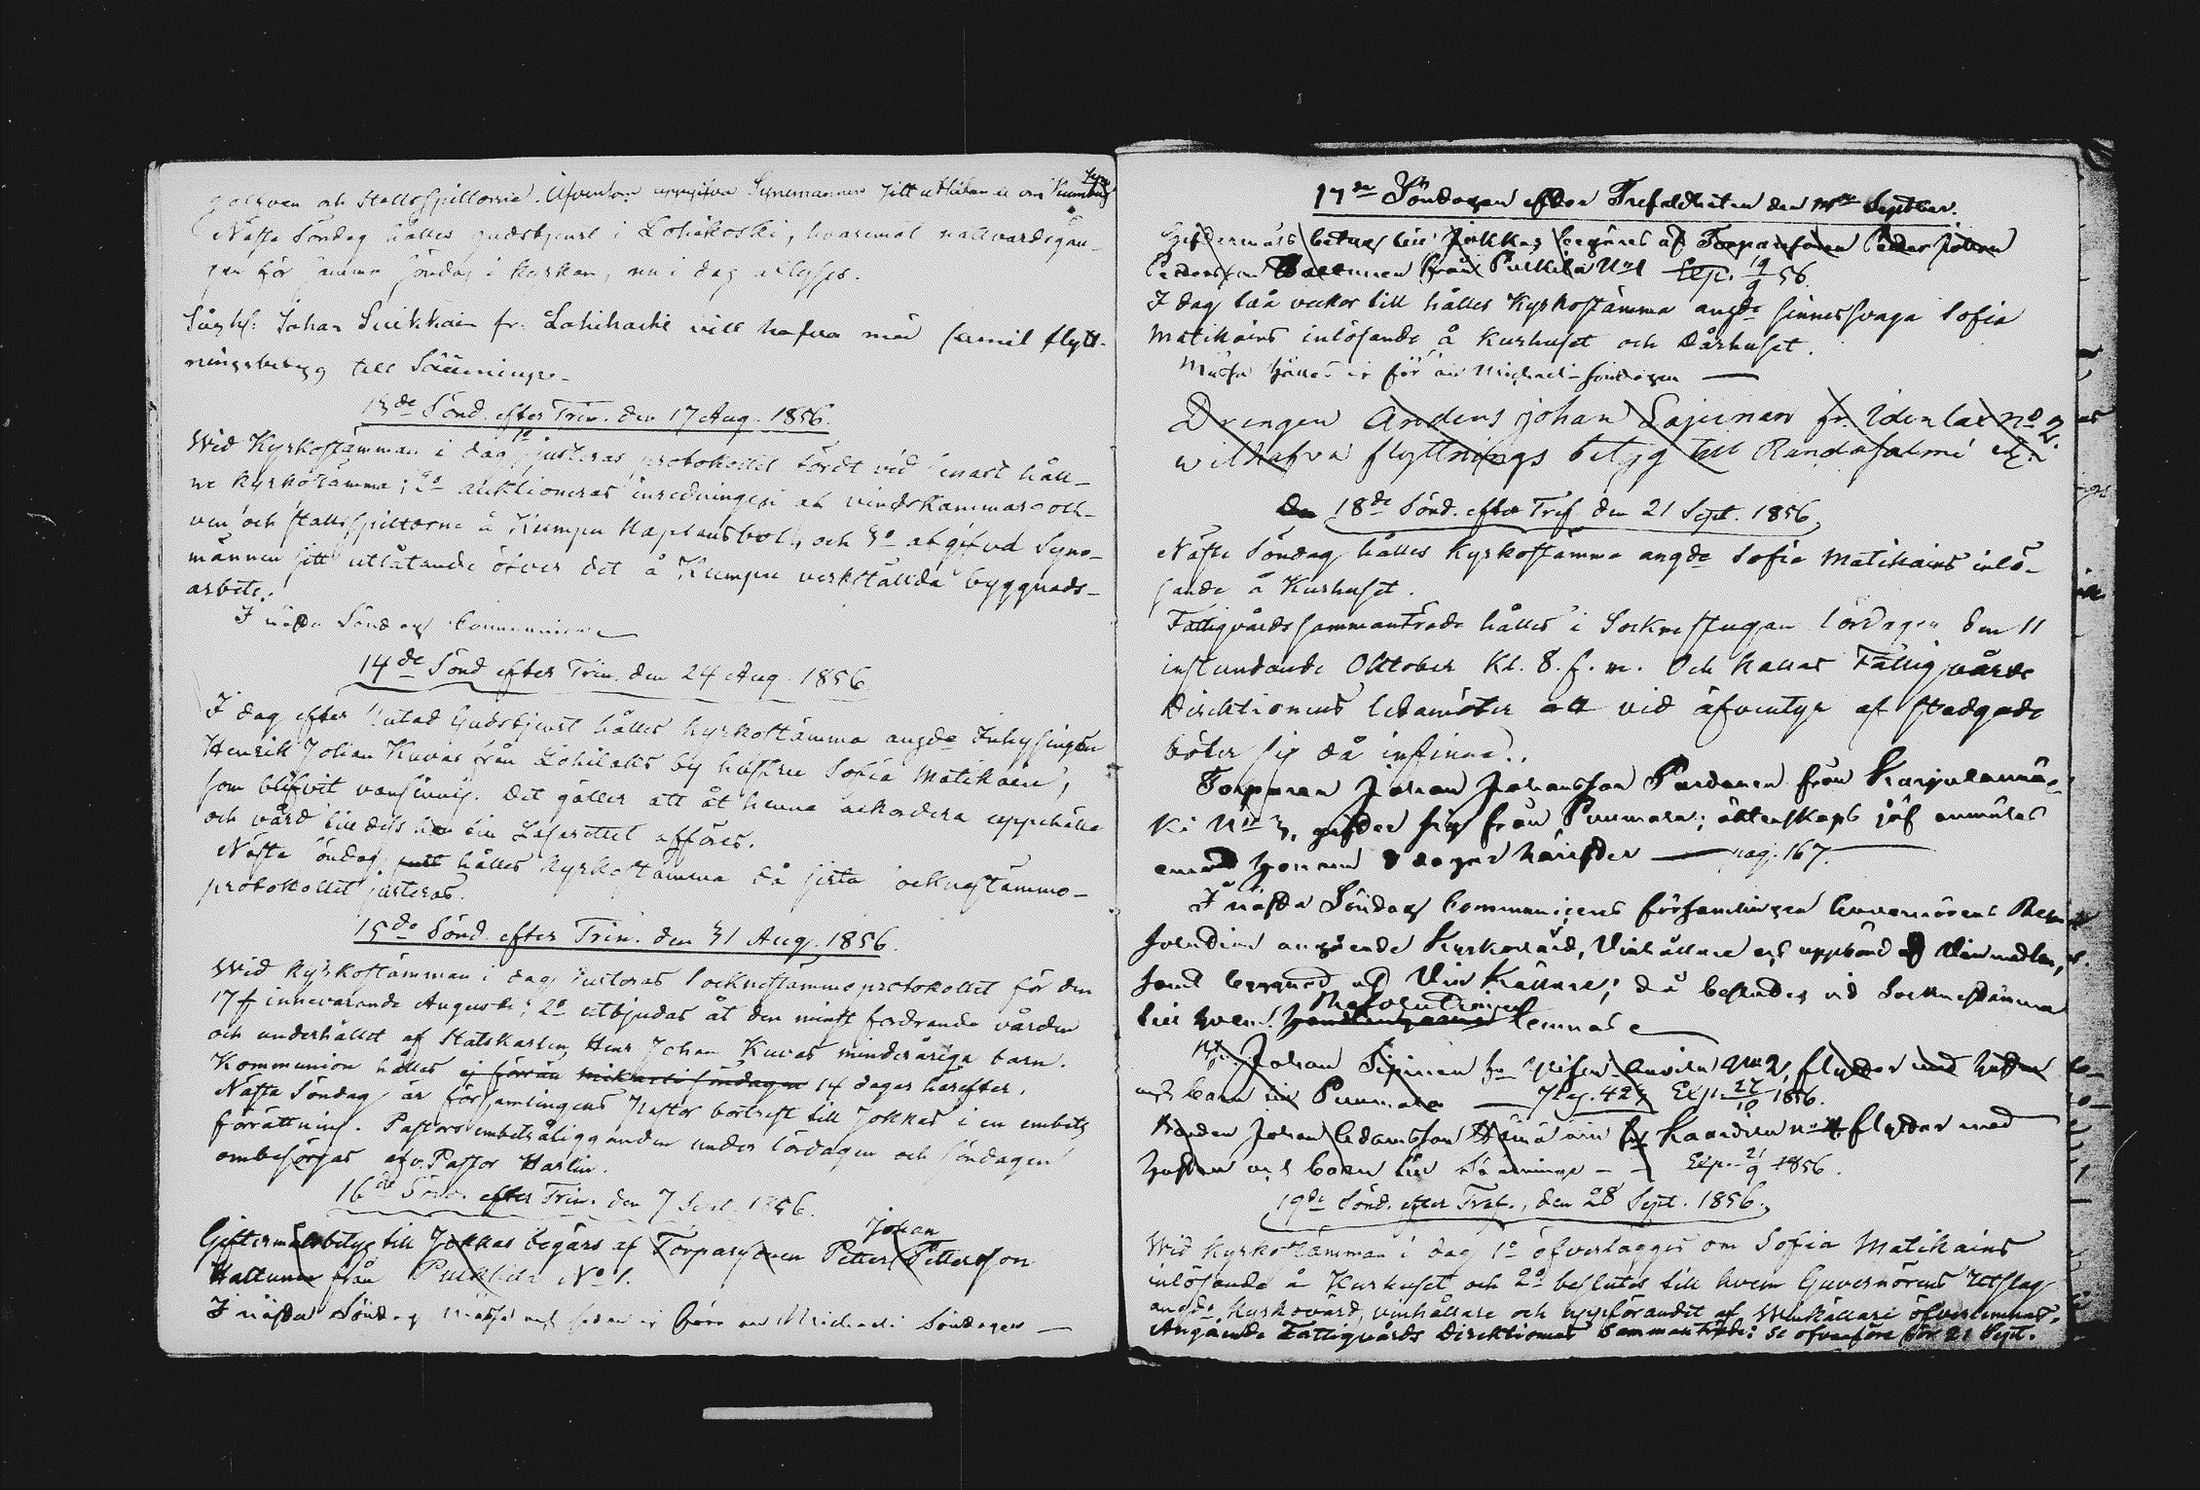 golfven och stallsspiltorna. Äfvensom uppgifva Synemännen sitt utlåtande om Kumpu
Nästa Söndag hålles gudstjenst i Lohikoski, hvaremot nattvardsgån-
gen för samma söndag i kyrkan, nu i dag aflyses.
Johan Suikkain fr. Lohikoski vill hafva med famil flytt-
ningsbetyg till Sääminge.
13de Sönd. efter Trin. den 17 Aug. 1856.
Wid Kyrkostämman i dag 1o justeras protokollet fördt vid senast håll-
ne kyrkostämma; 2o auktioneras inredningen at vindskammare och
ven och stallsspiltorna å Kumpu Kaplansbol., och 3o afgifva Syne-
männen sitt utlåtande öfver det å Kumpu verkställda byggnads-
arbete.
I nästa Söndag Communion
14de Sönd efter Trin. den 24 Aug. 1856.
I dag efter slutad Gudstjenst hålles kyrkostämma angde Inhysingen
Henrik Johan Kuvas från Lohilaks by hustru Sofia Matikain,
som blifvit vansinnig. Det gäller att åt henne ackordera uppehälle
och vård till dess hon till Lasarettet afföres.
Nästa söndag hålles kyrkostämma då sista socknestämmo-
protokollet justeras.
15de Sönd. efter Trin. den 31 Aug. 1856.
Wid kyrkostämman i dag justeras Socknestämmoprotokollet för den
17 innevarande Augusti; 2o utbjudas åt den minst fordrande vården
och underhållet af Statskarlen Henr Johan Kuvas minderåriga barn.
Kommunion hålles ej förrän mikaeli söndagen 14 dagar härefter.
Nästa Söndag är församlingens Pastor bortrest till Jokkas i en embets
förrättning. Pastorsembetsåligganden under lördagen och söndagen
ombesörjas af v. Pastor Harlin.
16de Sönd. efter Trin. den 7 Sept. 1856.
Johan
Giftermålsbetyg till Jokkas begärs af Torparesonen Petter Pettersson
Hattunen från Pulkkila No 1.
I nästa Söndag före Michaeli Söndagen
17de Söndagen efter Trefaldheten den 14de September.
Giftermåls betyg till Jokkas begäres af Torparsonen Petter Johan
Pettersson Hattunen från Pulkkila No 1 Exp. 19/9 56.
I dag två veckor till hålles Kyrkostämma angde sinnessvaga Sofia
Matikains inlösande å Kurhuset och Dårhuset.
för än Michaeli-söndagen
Drengen Anders Johan Lajunen fr. Idenlax No 2.
wil hafva flyttnings betyg till Randasalmi
18de Sönd. efter Tref den 21 Sept. 1856.
Nästa Söndag hålles Kyrkostämma angde Sofia Matikains inlö-
sande å Kurhuset.
Fattigvårdssammanträde hålles i Sockenstugan lördagen den 11
instundande Oktober Kl. 8. f. m. Och kallas Fattigvårds
Direktionens ledamöter att vid äfventyr af stadgade
böter sig då infinna.
Torparen Johan Johansson Pardanen från Karjulanmä-
ki No 3, gifter sig från Puumala; äktenskaps jäf anmäles
emot honom 8 dagar härefter pag. 167.
I nästa Söndag communiceras församlingen Guvernörens Reso-
lution angående Kyrkovärd, Vinhållare och uppbörd af Vinmedlen,
samt byggnad af Vin Källare; då beslutes vid Sockenstämma
Resolutionen
till hvem handlingarna lemnas
Johan Sipinen fr No 2, flyttar med hustru
och barn till Puumala Pag. 427 Exp. 27/10 1856.
Bonden Johan Adamsson Hämäläin fr Kaartila No 4 flyttar med
hustru och barn till Sääminge Exp. 21/9 1856.
19de Sönd. efter Tref., den 28 Sept. 1856.
Wid kyrkostämman i dag 1o öfverlägges om Sofia Matikains
inlösande å Kurhuset och 2o beslutes till hvem Guvernörens Utslag
angde Kyrkovärd, vinhållare och uppförandet af Vinkällare öfverlemnas.
Angående Fattigvårds Direktionens Sammanträde: se ofvanföre för 21 Sept.